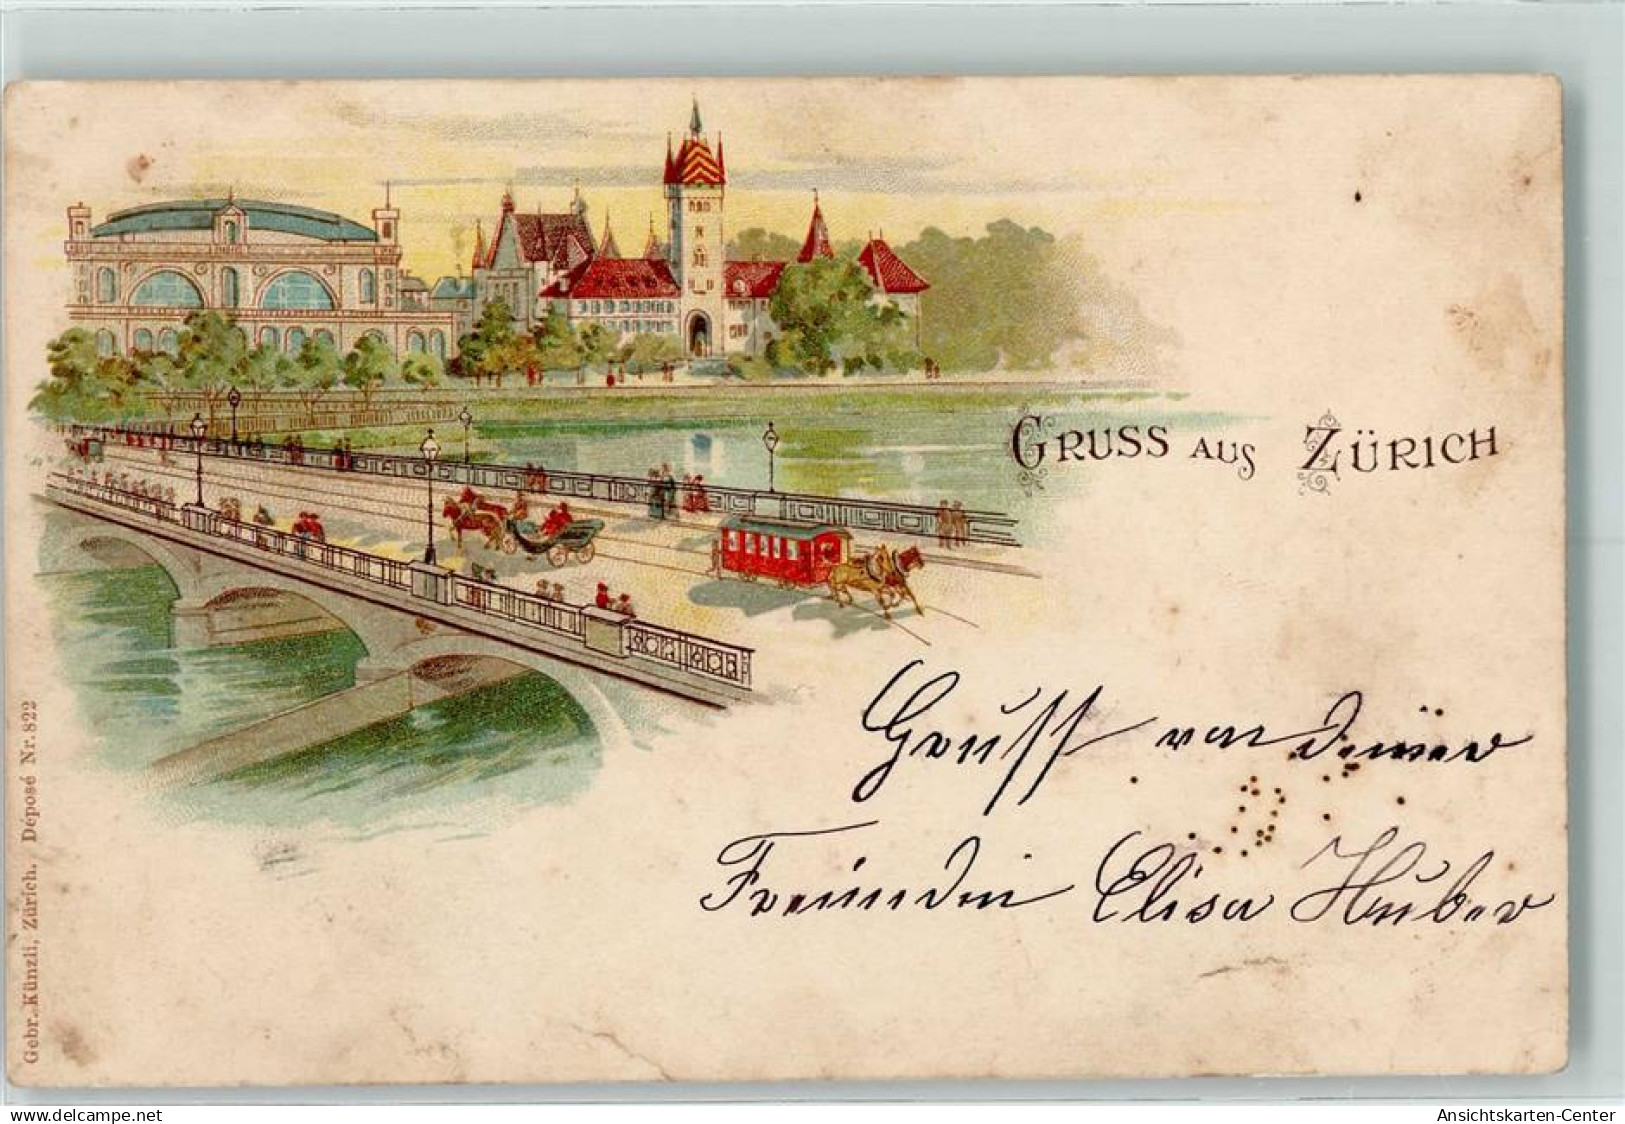 GRUSS AUS ZÜRICH
Gruss von deiner
Freundin Elisa Huber
Gebr. Künzli, Zürich. Déposé Nr. 822
www.delcampe.net
Ansichtskarten-Center